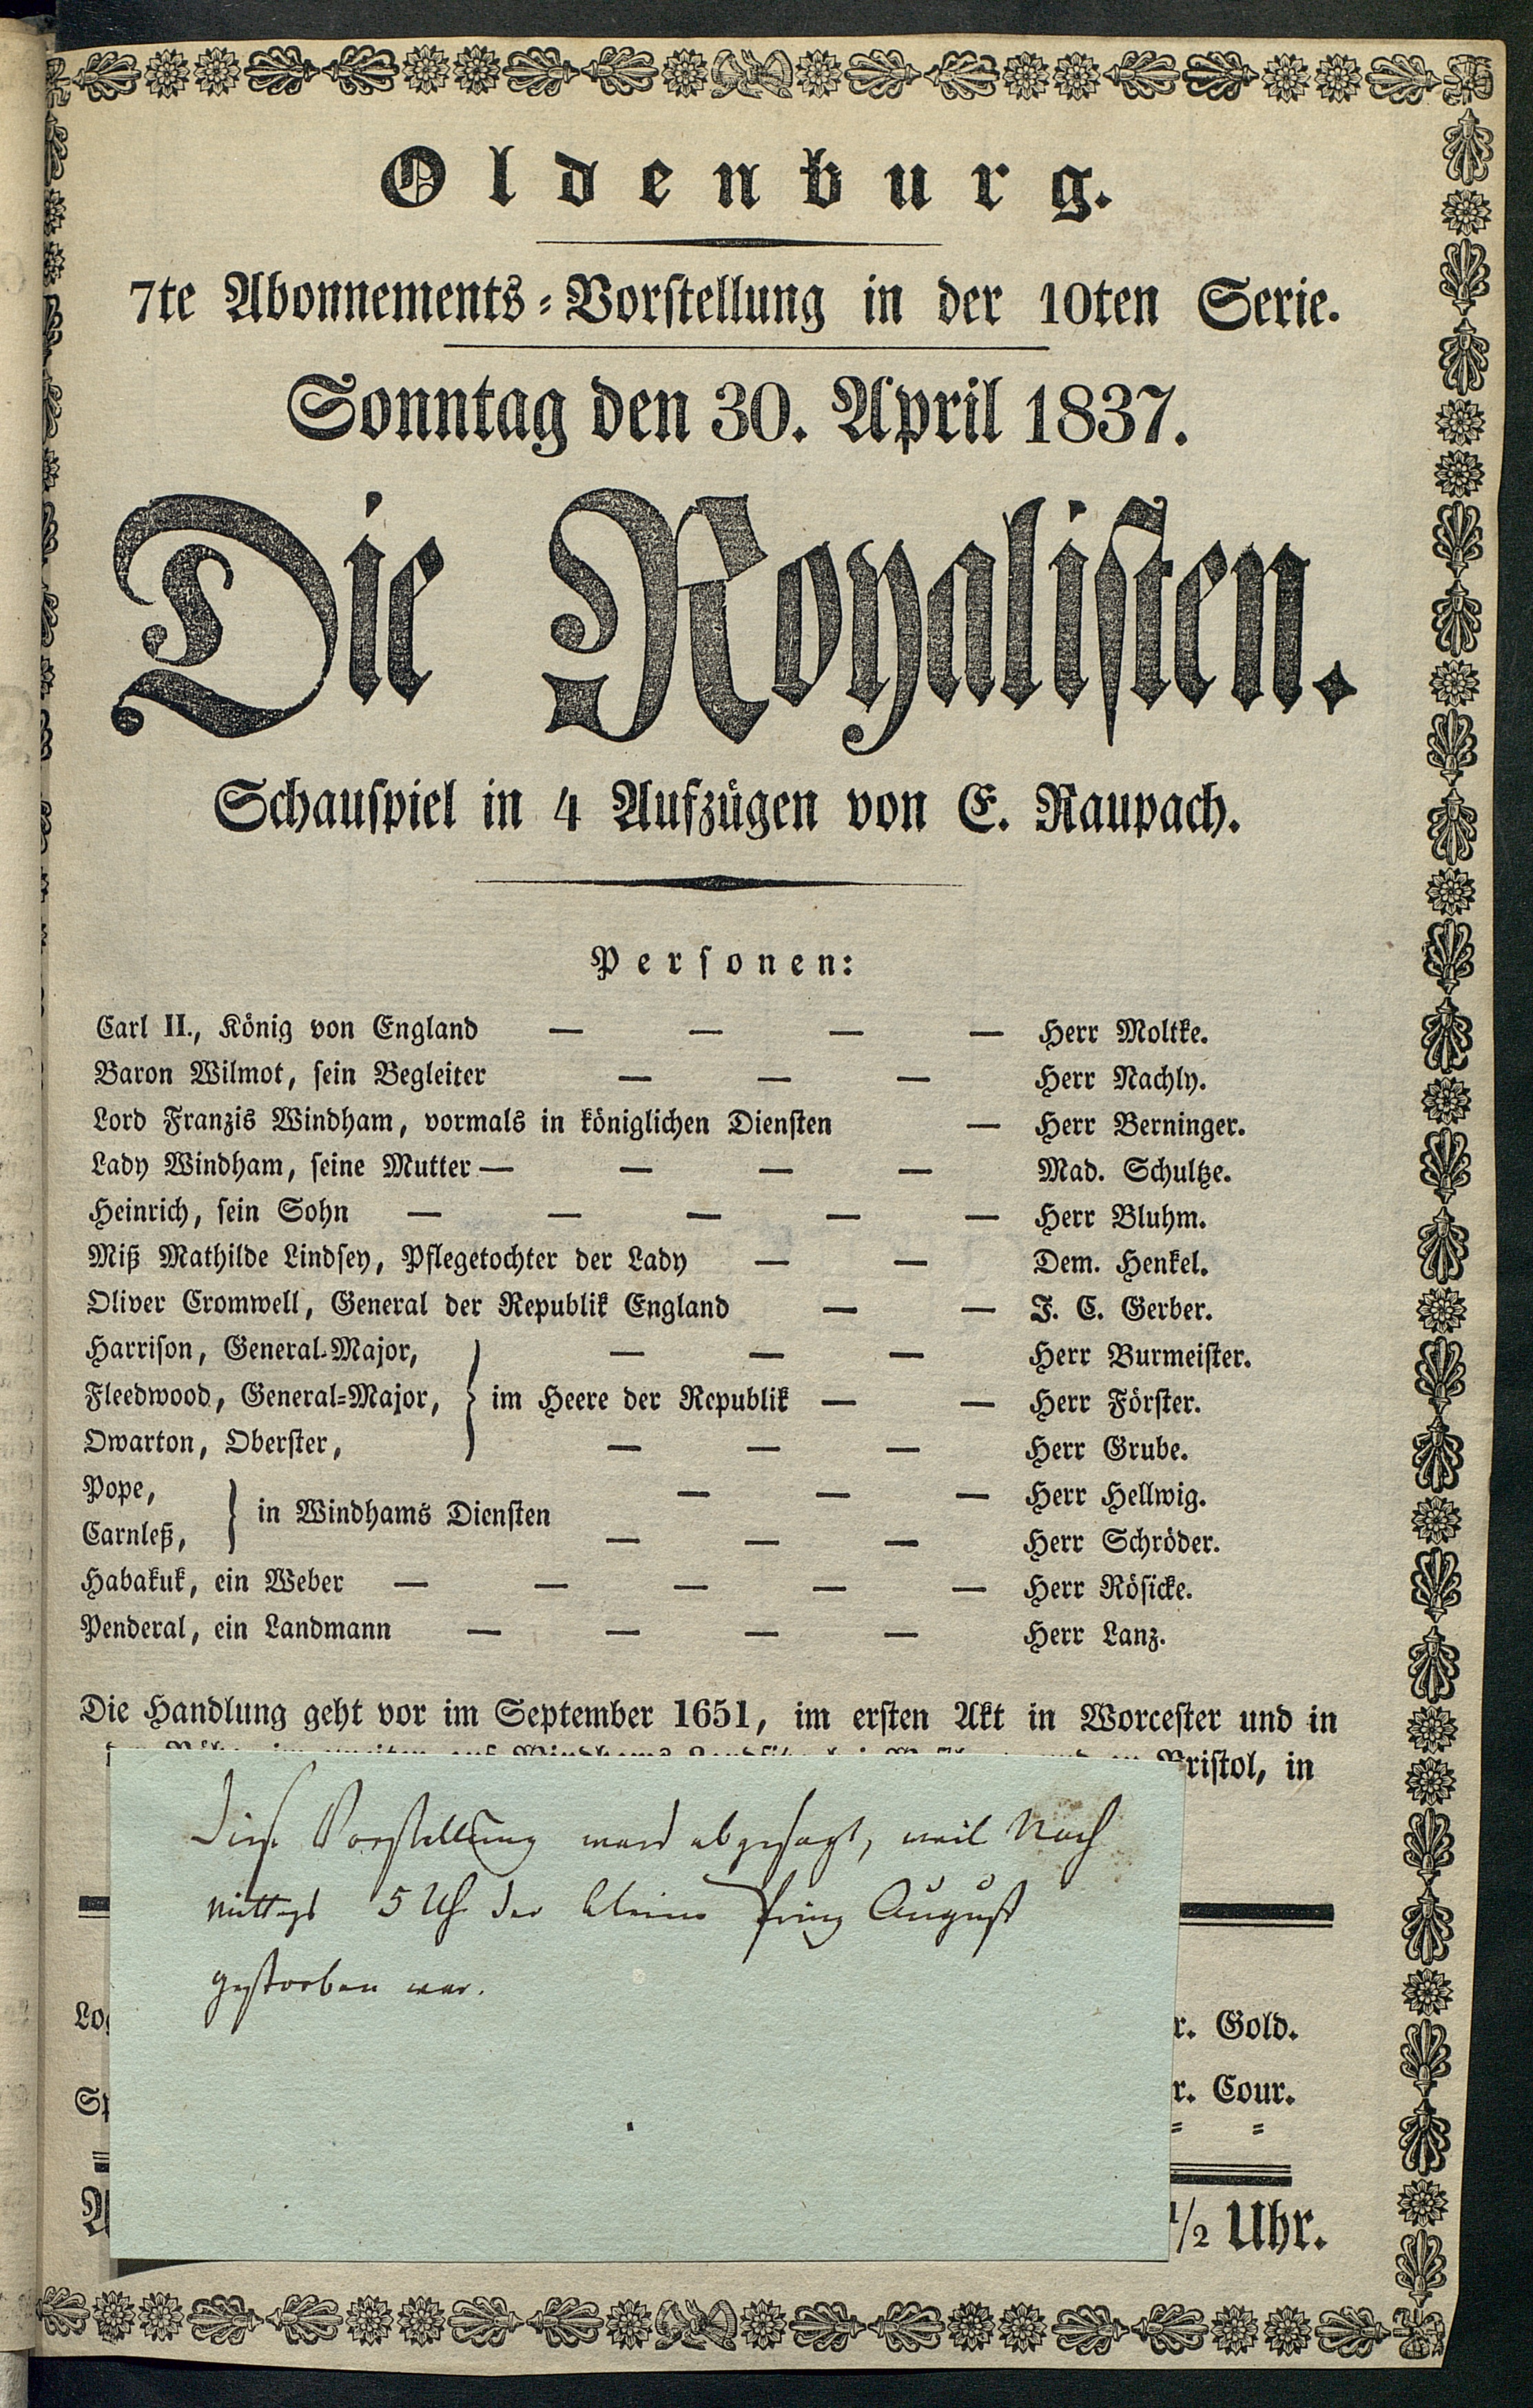 Oldenburg.
7te Abonnements-Vorstellung in der 10ten Serie.
Sonntag den 30. April 1837.
Die Royalisten.
Schauspiel in 4 Aufzügen von E. Raupach.
Personen:
Carl II., König von England — — — — Herr Moltke.
Baron Wilmot, sein Begleiter — — — Herr Nachly.
Lord Franzis Windham, vormals in königlichen Diensten — Herr Berninger.
Lady Windham, seine Mutter — — — — Mad. Schultze.
Heinrich, sein Sohn — — — — — Herr Bluhm.
Miß Mathilde Lindsey, Pflegetochter der Lady — — Dem. Henkel.
Oliver Cromwell, General der Republik England — — J. C. Gerber.
Harrison, General-Major, — — — Herr Burmeister.
Fleedwood, General-Major, } im Heere der Republik — — Herr Förster.
Owarton, Oberster, — — — Herr Grube.
Pope, — — — Herr Hellwig.
} in Windhams Diensten
Carnleß, — — — Herr Schröder.
Habakuk, ein Weber — — — — — Herr Rösicke.
Penderal, ein Landmann — — — — Herr Lanz.
Die Handlung geht vor im September 1651, im ersten Akt in Worcester und in
Bristol, in
Diese Vorstellung ward abgesagt, weil Nach
mittags 5 Uhr der kleine Prinz August
gestorben war.
r. Gold.
r. Cour.
1/2 Uhr.